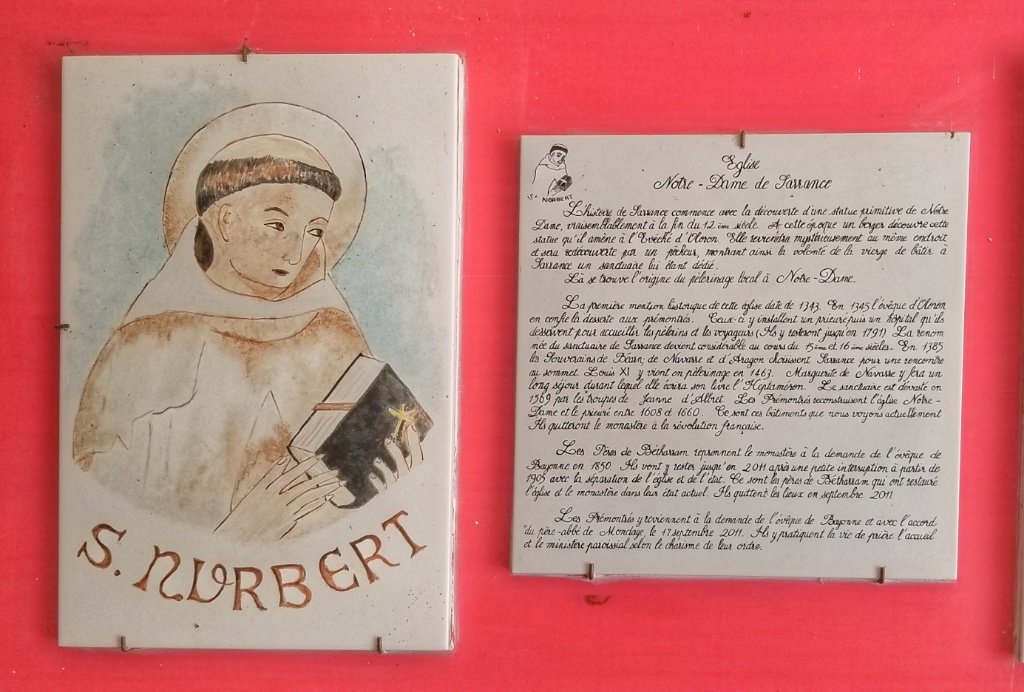 S. NORBERT
Eglise
Notre - Dame de Sarrance
St NORBERT
L'histoire de Sarrance commence avec la découverte d'une statue primitive de Notre
Dame, vraisemblablement à la fin du 12 ème siècle. A cette époque un berger découvre cette
statue qu'il amène à l'Evêché d'Oloron. Elle reviendra mystérieusement au même endroit
et sera redécouverte par un pêcheur, montrant ainsi la volonté de la vierge de bâtir à
Sarrance un sanctuaire lui étant dédié.
Là se trouve l'origine du pèlerinage local à Notre-Dame.
La première mention historique de cette église date de 1343. En 1345 l'évêque d'Oloron
en confie la desserte aux prémontrés. Ceux-ci y installent un prieuré puis un hôpital qu'ils
desservent pour accueillir les pèlerins et les voyageurs (Ils y resteront jusqu'en 1791) La renom
mée du sanctuaire de Sarrance devient considérable au cours du 15ème et 16 ème siècles. En 1385
les Souverains de Béarn, de Navarre et d'Aragon choisissent Sarrance pour une rencontre
au sommet. Louis XI y vient en pèlerinage en 1463. Marguerite de Navarre y fera un
long séjour durant lequel elle écrira son livre l'Heptaméron. Le sanctuaire est dévasté en
1569 par les troupes de Jeanne d'Albret. Les Prémontrés reconstruisent l'église Notre-
Dame et le prieuré entre 1608 et 1660. Ce sont ces bâtiments que nous voyons actuellement
Ils quitteront le monastère à la révolution française.
Les Pères de Bétharram reprennent le monastère à la demande de l'évêque de
Bayonne en 1850. Ils vont y rester jusqu'en 2011 après une petite interruption à partir de
1905 avec la séparation de l'église et de l'état. Ce sont les pères de Bétharram qui ont restauré
l'église et le monastère dans leur état actuel. Ils quittent les lieux en septembre 2011.
Les Prémontrés y reviennent à la demande de l'évêque de Bayonne et avec l'accord
du père-abbé de Mondaye, le 17 septembre 2011. Ils y pratiquent la vie de prière l'accueil
et le ministère paroissial selon le charisme de leur ordre.